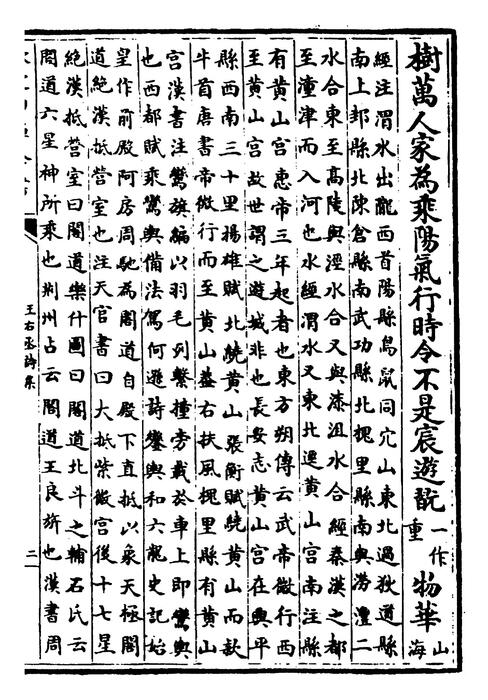 樹萬人家為乘陽氣行時令不是宸遊翫一作重物華山海
經注渭水出隴西首陽縣鳥鼠同穴山東北過狄道縣
南上邽縣北陳倉縣南武功縣北槐里縣南與澇澧二
水合東至高陵與涇水合又與漆沮水合經秦漢之都
至潼津而入河也水經渭水又東北逕黃山宮南注縣
有黃山宮惠帝三年起者也東方朔傳云武帝微行西
至黃山宮故世謂之遊城非也長安志黃山宮在興平
縣西南三十里揚雄賦北繞黃山張衡賦繞黃山而款
牛首唐書帝微行而至黃山蓋右扶風槐里縣有黃山
宮漢書注鸞旗編以羽毛列繫橦旁載於車上即鸞輿
也西都賦乘鸞輿備法駕何遜詩鑾輿和六龍史記始
皇作前殿阿房周馳為閣道自殿下直抵以象天極閣
道絕漢抵營室也注天官書曰大抵紫微宮後十七星
絕漢抵營室曰閣道樂什圖曰閣道北斗之輔石氏云
閣道六星神所乘也荊州占云閣道王良旂也漢書周
王右丞詩集
二